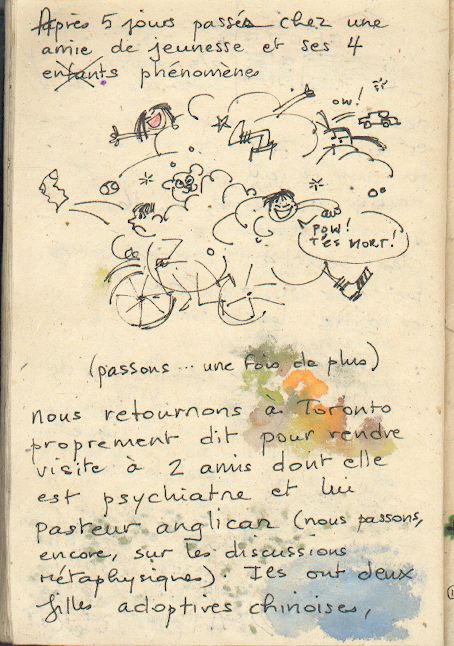 Après 5 jours passés chez une
amie de jeunesse et ses 4
enfants phénomènes
OW!
POW!
T'ES MORT!
(passons ... une fois de plus)
nous retournons à Toronto
proprement dit pour rendre
visite à 2 amis dont elle
est psychiatre et lui
pasteur anglican (nous passons,
encore, sur les discussions
métaphysiques). Ils ont deux
filles adoptives chinoises,